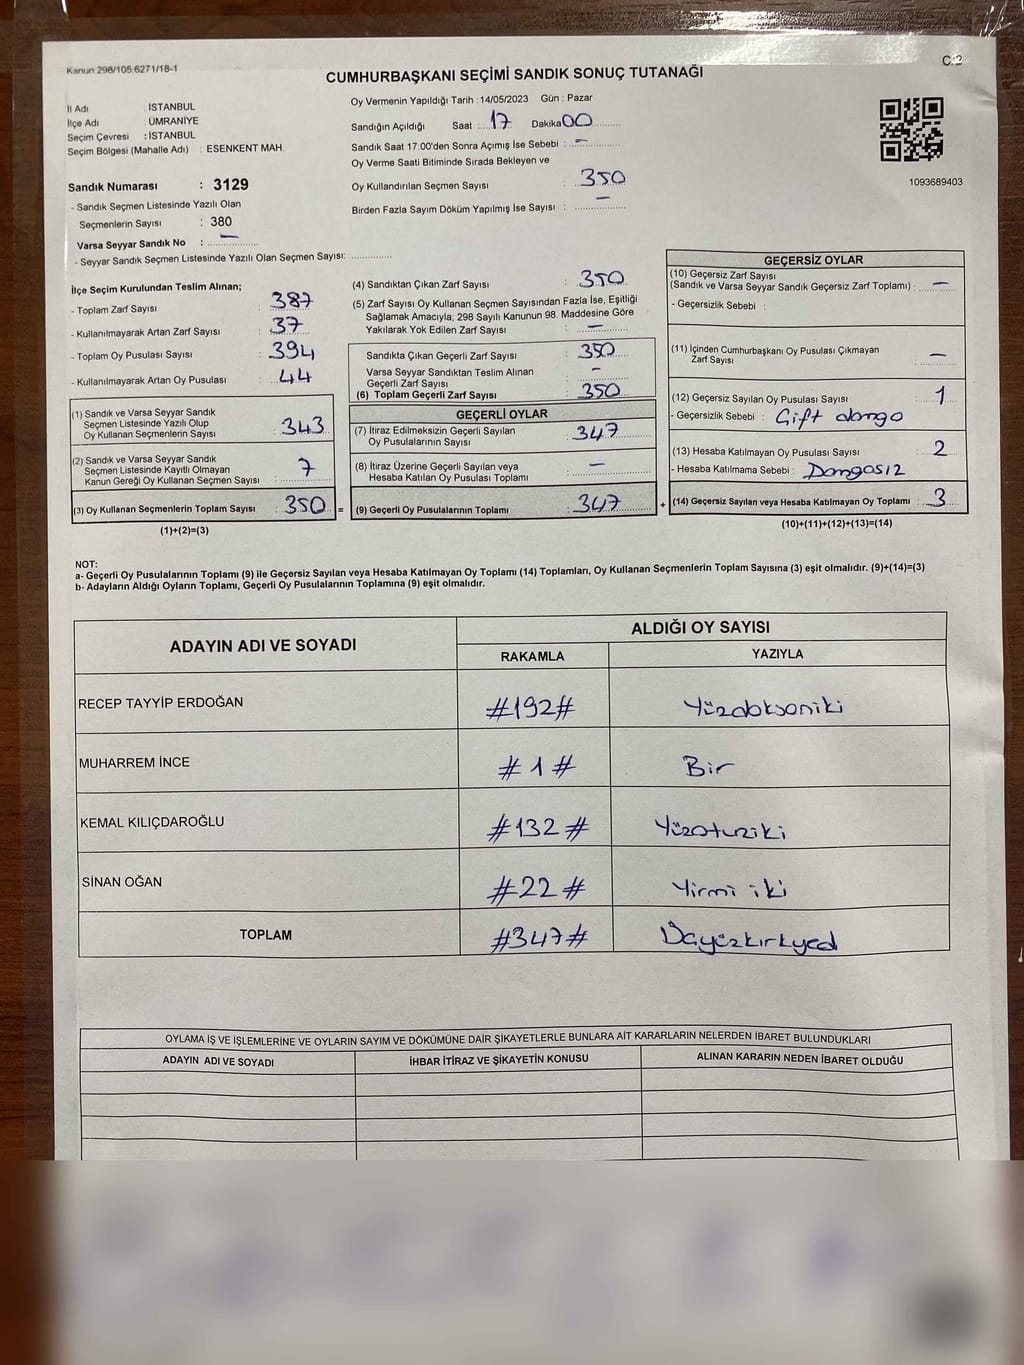 Kanun 298/105 6271/18-1
C.2
CUMHURBAŞKANI SEÇİMİ SANDIK SONUÇ TUTANAĞI
İl Adı : İSTANBUL
İlçe Adı : ÜMRANİYE
Seçim Çevresi : İSTANBUL
Seçim Bölgesi (Mahalle Adı) : ESENKENT MAH.
Sandık Numarası : 3129
- Sandık Seçmen Listesinde Yazılı Olan
Seçmenlerin Sayısı : 380
Varsa Seyyar Sandık No : –
- Seyyar Sandık Seçmen Listesinde Yazılı Olan Seçmen Sayısı: ..............
Oy Vermenin Yapıldığı Tarih : 14/05/2023 Gün : Pazar
Sandığın Açıldığı Saat : 17 Dakika 00
Sandık Saat 17:00'den Sonra Açımış İse Sebebi : –
Oy Verme Saati Bitiminde Sırada Bekleyen ve
Oy Kullandırılan Seçmen Sayısı : 350
Birden Fazla Sayım Döküm Yapılmış İse Sayısı : –
1093689403
İlçe Seçim Kurulundan Teslim Alınan;
- Toplam Zarf Sayısı : 387
- Kullanılmayarak Artan Zarf Sayısı : 37
- Toplam Oy Pusulası Sayısı : 394
- Kullanılmayarak Artan Oy Pusulası : 44
(1) Sandık ve Varsa Seyyar Sandık
Seçmen Listesinde Yazılı Olup
Oy Kullanan Seçmenlerin Sayısı : 343
(2) Sandık ve Varsa Seyyar Sandık
Seçmen Listesinde Kayıtlı Olmayan
Kanun Gereği Oy Kullanan Seçmen Sayısı : 7
(3) Oy Kullanan Seçmenlerin Toplam Sayısı : 350 =
(1)+(2)=(3)
(4) Sandıktan Çıkan Zarf Sayısı : 350
(5) Zarf Sayısı Oy Kullanan Seçmen Sayısından Fazla İse, Eşitliği
Sağlamak Amacıyla; 298 Sayılı Kanunun 98. Maddesine Göre
Yakılarak Yok Edilen Zarf Sayısı : –
Sandıkta Çıkan Geçerli Zarf Sayısı : 350
Varsa Seyyar Sandıktan Teslim Alınan
Geçerli Zarf Sayısı : –
(6) Toplam Geçerli Zarf Sayısı : 350
GEÇERLİ OYLAR
(7) İtiraz Edilmeksizin Geçerli Sayılan
Oy Pusulalarının Sayısı : 347
(8) İtiraz Üzerine Geçerli Sayılan veya
Hesaba Katılan Oy Pusulası Toplamı : –
(9) Geçerli Oy Pusulalarının Toplamı : 347 +
GEÇERSİZ OYLAR
(10) Geçersiz Zarf Sayısı
(Sandık ve Varsa Seyyar Sandık Geçersiz Zarf Toplamı) : –
- Geçersizlik Sebebi :
(11) İçinden Cumhurbaşkanı Oy Pusulası Çıkmayan
Zarf Sayısı : –
(12) Geçersiz Sayılan Oy Pusulası Sayısı : 1
- Geçersizlik Sebebi : Çift damga
(13) Hesaba Katılmayan Oy Pusulası Sayısı : 2
- Hesaba Katılmama Sebebi : Damgasız
(14) Geçersiz Sayılan veya Hesaba Katılmayan Oy Toplamı : 3
(10)+(11)+(12)+(13)=(14)
NOT:
a- Geçerli Oy Pusulalarının Toplamı (9) ile Geçersiz Sayılan veya Hesaba Katılmayan Oy Toplamı (14) Toplamları, Oy Kullanan Seçmenlerin Toplam Sayısına (3) eşit olmalıdır. (9)+(14)=(3)
b- Adayların Aldığı Oyların Toplamı, Geçerli Oy Pusulalarının Toplamına (9) eşit olmalıdır.
ADAYIN ADI VE SOYADI
ALDIĞI OY SAYISI
RAKAMLA YAZIYLA
RECEP TAYYİP ERDOĞAN #192# Yüzdoksaniki
MUHARREM İNCE #1# Bir
KEMAL KILIÇDAROĞLU #132# Yüzotuziki
SİNAN OĞAN #22# Yirmi iki
TOPLAM #347# Üçyüzkırkyedi
OYLAMA İŞ VE İŞLEMLERİNE VE OYLARIN SAYIM VE DÖKÜMÜNE DAİR ŞİKAYETLERLE BUNLARA AİT KARARLARIN NELERDEN İBARET BULUNDUKLARI
ADAYIN ADI VE SOYADI İHBAR İTİRAZ VE ŞİKAYETİN KONUSU ALINAN KARARIN NEDEN İBARET OLDUĞU